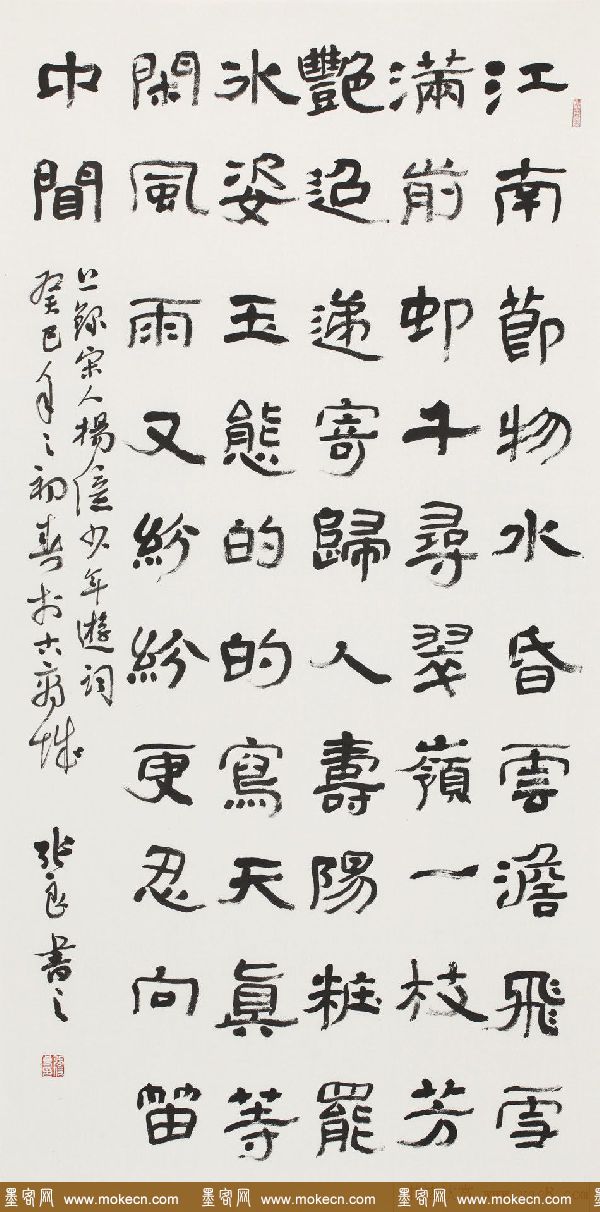 江南節物水昏雲澹飛雪
滿前邨千尋翠嶺一枝芳
艷迢遞寄歸人壽陽粧罷
冰姿玉態的的寫天真等
閑風雨又紛紛更忍向笛
中聞
上錄宋人楊億少年遊詞
癸巳年之初春於古商城 張良書之
墨客网 www.mokecn.com 墨客网 www.mokecn.com 墨客网 www.mokecn.com